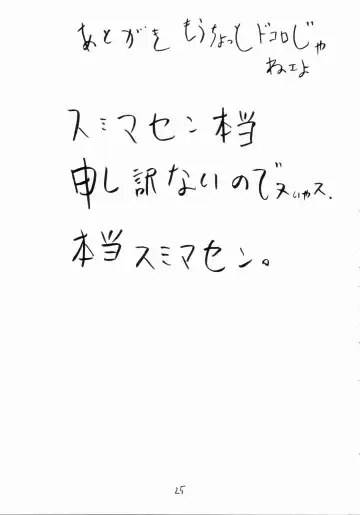 あとがき もうちょっとドコロじゃ
ねェよ
スミマセン本当
申し訳ないのでヌいやス.
本当スミマセン。
25